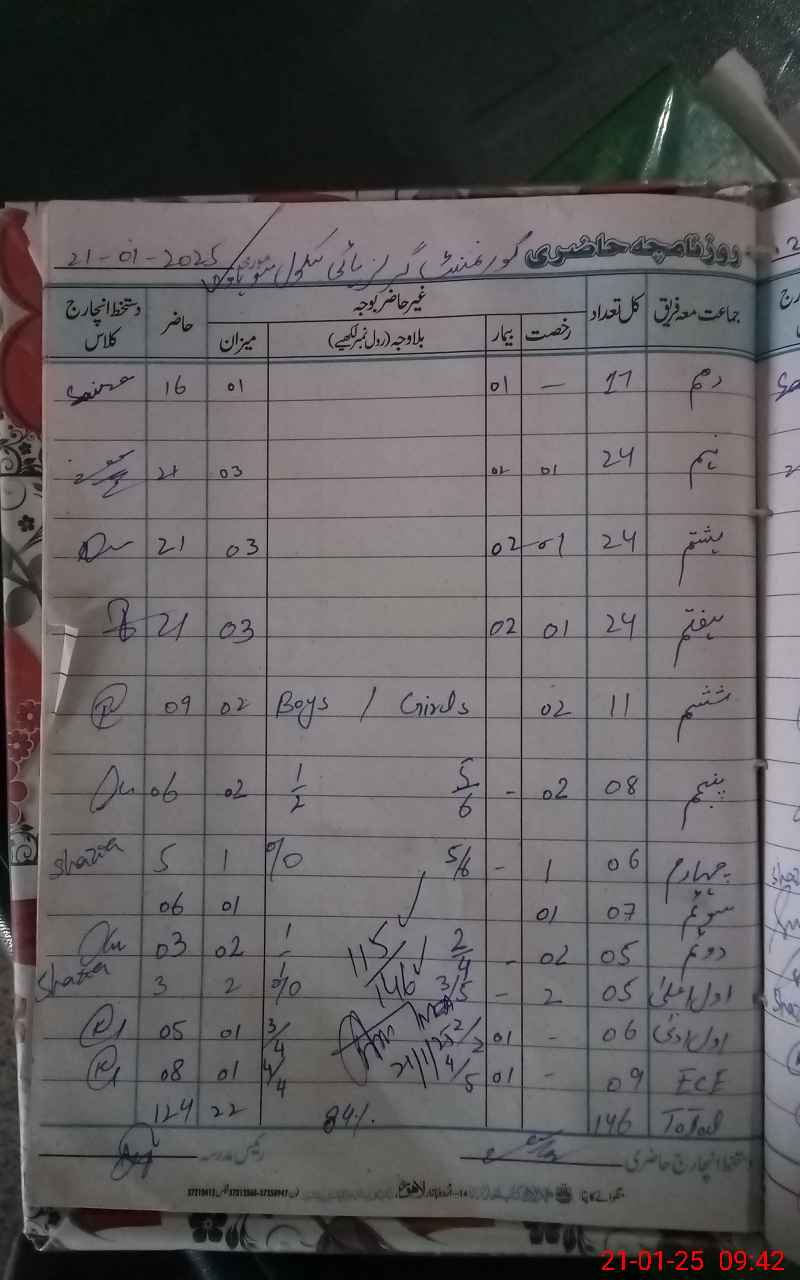 روزنامچہ حاضری گورنمنٹ گرلز ہائی سکول 21-01-2025
جماعت معہ فریق کل تعداد غیر حاضر بوجہ حاضر دستخط انچارج کلاس
رخصت بیمار بلاوجہ (رول نمبر لکھیے) میزان
دہم 17 – 01 01 16 Saira
نہم 24 01 02 03 21
ہشتم 24 01 02 03 21
ہفتم 24 01 02 03 21
ششم 11 02 Boys / Girls 02 09
پنجم 08 02 - 5/6 1/2 02 06
چہارم 06 1 - 5/6 %0 1 5 Shazia
سوئم 07 01 01 06
دوئم 05 02 - 2/4 115/146 02 03
اول اعلیٰ 05 2 - 3/5 %0 2 3 Shazia
اول ادنیٰ 06 - 01 2/2 3/4 01 05
21/1/25
ECE 09 - 01 4/5 4/4 01 08
Total 146 84% 22 124
دستخط انچارج حاضری رئیس مدرسہ
21-01-25 09:42